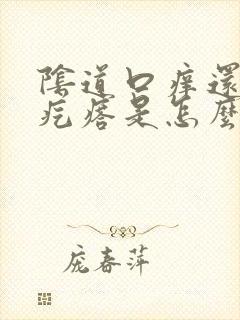 陰道口痒還
疙瘩是怎麼
庞春萍